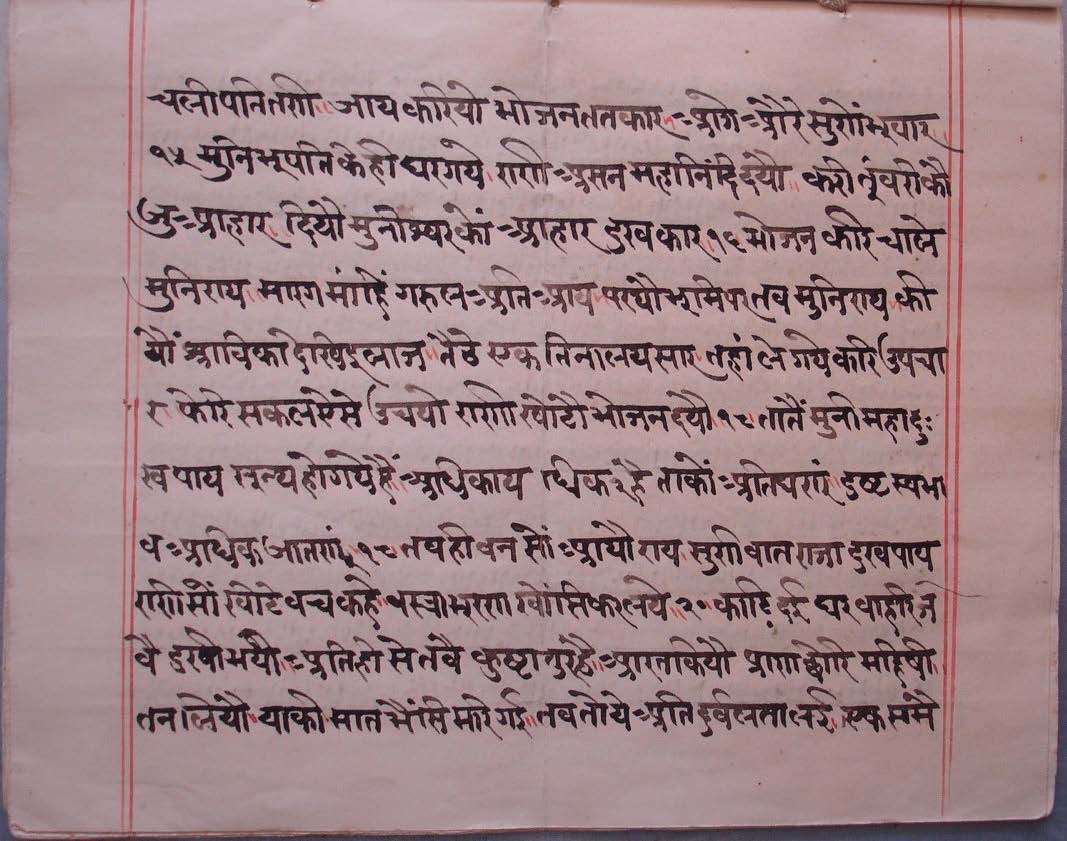 चली पनि तगी॥ जाय करियो भोजन ततकार॥ आगे और सुणों भूपार॥
१५ मुनि भूपति के ही घर गये राणी अप्रसन महा निंदि दयौ॥ करी तूंवरी कौ
जु आहार दियौ मुनीश्वर कों आहार दुखकार १६ भोजन करि चाले
मुनिराय मारग मांहिं गहल अति आय परयौ भूमि पर तव मुनिराय की
यौं श्राविका देखि दूलाज॥ तैठे एक जिनालय सार तहां ले गये करि उपचा
र फेरि सकल ऐसे उचयो राणी खोटौ भोजन दयौ १८ तातैं मुनी महा दुः
ख पाय सुन्य हो गये हैं अधिकाय धिक है ताकों अति घणां दुष्ट स्वभा
व अधिक आतणां १९ तव ही वन सों आयौ राय सुणी वात राजा दुख पाय
राणी सौं खोटे वच कहे वस्त्राभरण खोंसि कर लये २० काढि दई घर वाहरि जे
वै दुखी भयौ अति ही सेतवै कुष्टातुर है आरत कियौ प्राण छोरि महिषी
तन लियौ याकी मात भैंसि मरि गई तव तौ ये अति दुर्वलता लई एक समै